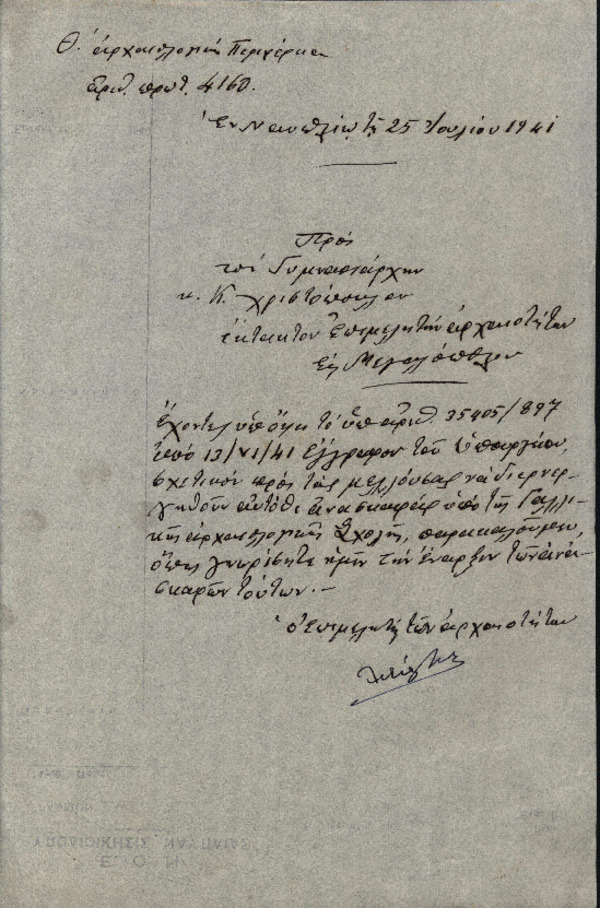 Θ. ἀρχαιολογικὴ Περιφέρεια
ἀριθ. πρωτ. 4160.
Ἐν Ναυπλίῳ τῇ 25 Ἰουλίου 1941
Πρὸς
τὸν Γυμνασιάρχην
κ. Κ. Χριστόπουλον
ἔκτακτον Ἐπιμελητὴν ἀρχαιοτήτων
Εἰς Μεγαλόπολιν
Ἔχοντες ὑπ' ὄψει τὸ ὑπ' ἀριθ. 35405/897
ἀπὸ 13/VI/41 ἔγγραφον τοῦ Ὑπουργείου,
σχετικὸν πρὸς τὰς μελλούσας νὰ διενερ-
γηθοῦν αὐτόθι ἀνασκαφὰς ὑπὸ τῆς Γαλλι-
κῆς ἀρχαιολογικῆς Σχολῆς, παρακαλοῦμεν,
ὅπως γνωρίσητε ἡμῖν τὴν ἔναρξιν τῶν ἀνα-
σκαφῶν τούτων.-
Ὁ Ἐπιμελητὴς τῶν ἀρχαιοτήτων
ΥΠΟΔΙΟΙΚΗΣΙΣ ΝΑΥΠΛΙΑΣ
Ε. Ο. Ν.